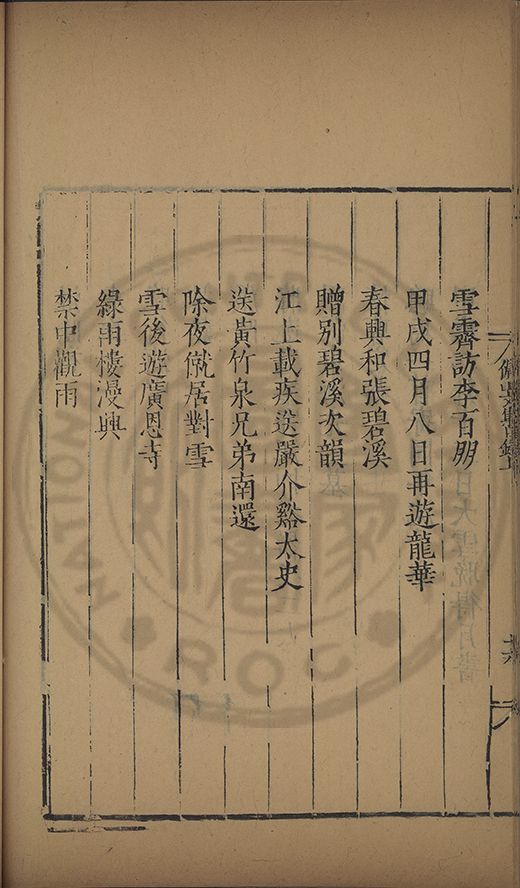 雪霽訪李百朋
甲戌四月八日再遊龍華
春興和張碧溪
贈別碧溪次韻
江上載疾送嚴介谿太史
送黃竹泉兄弟南還
除夜僦居對雪
雪後遊廣恩寺
綠雨樓漫興
禁中觀雨